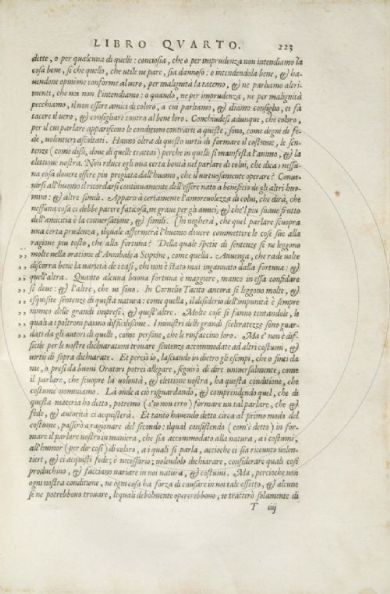 LIBRO QVARTO. 223
dette, o per qualcuna di quelle: conciosia, che o per imprudenza non intendiamo la
cosa bene, sì che quello, che utile ne pare, sia dannoso: o intendendola bene, & ha-
uendone opinione conforme al uero, per malignità la tacemo, & ne parliamo altri-
menti, che noi non l'intendiamo: o quando, ne per imprudenza, ne per malignità
pecchiamo, il non essere amici di coloro, a cui parliamo, & diamo consiglio, ci fa
tacere il uero, & consigliare contra al ben loro. Conchiudesi adunque, che coloro,
per il cui parlare appariscono le conditioni contrarie a queste, sono, come degni di fe-
de, uolentieri ascoltati. Hanno oltra di questo uirtù di formare il costume, le sen-
tenze (come dissi, doue di quelle trattai) perche in quelle si manifesta l'animo, & la
elettione nostra. Non riluce egli una certa bontà nel parlare di colui, che dica: nessu-
na cosa douere essere più pregiata dall'huomo, che il uirtuosamente operare? Conue-
nirsi all'huomo il ricordarsi continuamente dell'essere nato a beneficio de gli altri huo-
mini: & altre simili. Apparirà certamente l'amoreuolezza di colui, che dirà, che
nessuna cosa ci debbe parere faticosa, ne graue per gli amici; & che'l più soaue frutto
dell'amicitia è la conuersatione, & simili. Chi negherà, che quel parlare scuopra
una certa prudenza, il quale affermerà l'huomo douere commettere le cose sue alla
ragione più tosto, che alla fortuna? Della quale spetie di sentenze si ne leggono
molte nella oratione d'Annibale a Scipione, come quella. Auuenga, che rade uolte
discorra bene la uarietà de' casi, chi non è stato mai ingannato dalla fortuna: &
quell'altra. Quanto alcuna buona fortuna è maggiore, manco in essa confidare
si deue: & l'altre, che ui sono. In Cornelio Tacito ancora si leggono molte, &
esquisite sentenze di questa natura: come quella, il desiderio dell'impunità è sempre
nimico delle grandi imprese; & quest'altre. Molte cose si fanno tentandole, le
quali a i poltroni paiono difficilissime. I ministri delle grandi scelleratezze sono guar-
dati da gli autori di quelle, come persone, che le rinfaccino loro. Ma e' non è dif-
ficile per le nostre dichiarationi trouare sentenze accommodate ad altri costumi, &
uirtù di sopra dichiarate. Et perciò io, lasciando in dietro gli esempi, che o finti da
me, o presi da buoni Oratori potrei allegare, seguirò di dire uniuersalmente, come
il parlare, che scuopre la uolontà, & elettione nostra, ha questa conditione, che
costume nominiamo. Là onde a ciò riguardando, & comprendendo quel, che di
questa materia ho detto, potremo (s'io non erro) formare un tal parlare, che &
fede, & autorità ci acquisterà. Et tanto hauendo detto circa al primo modo del
costume, passerò a ragionare del secondo: il qual consistendo (com'è detto) in for-
mare il parlare nostro in maniera, che sia accommodato alla natura, a i costumi,
all'humor (per dir così) di coloro, a i quali si parla, accioche ci sia ricenuto uolen-
tieri, & ci acquisti fede; è necessario; uolendolo dichiarare, considerare quali cose
produchino, & facciano uariare in noi natura, & costumi. Ma, percioche non
ogni nostra conditione, ne ogni cosa ha forza di causare in noi tale effetto, & alcune
si ne potrebbono trouare, le quali debolmente opererebbono, io tratterò solamente di
T iiij